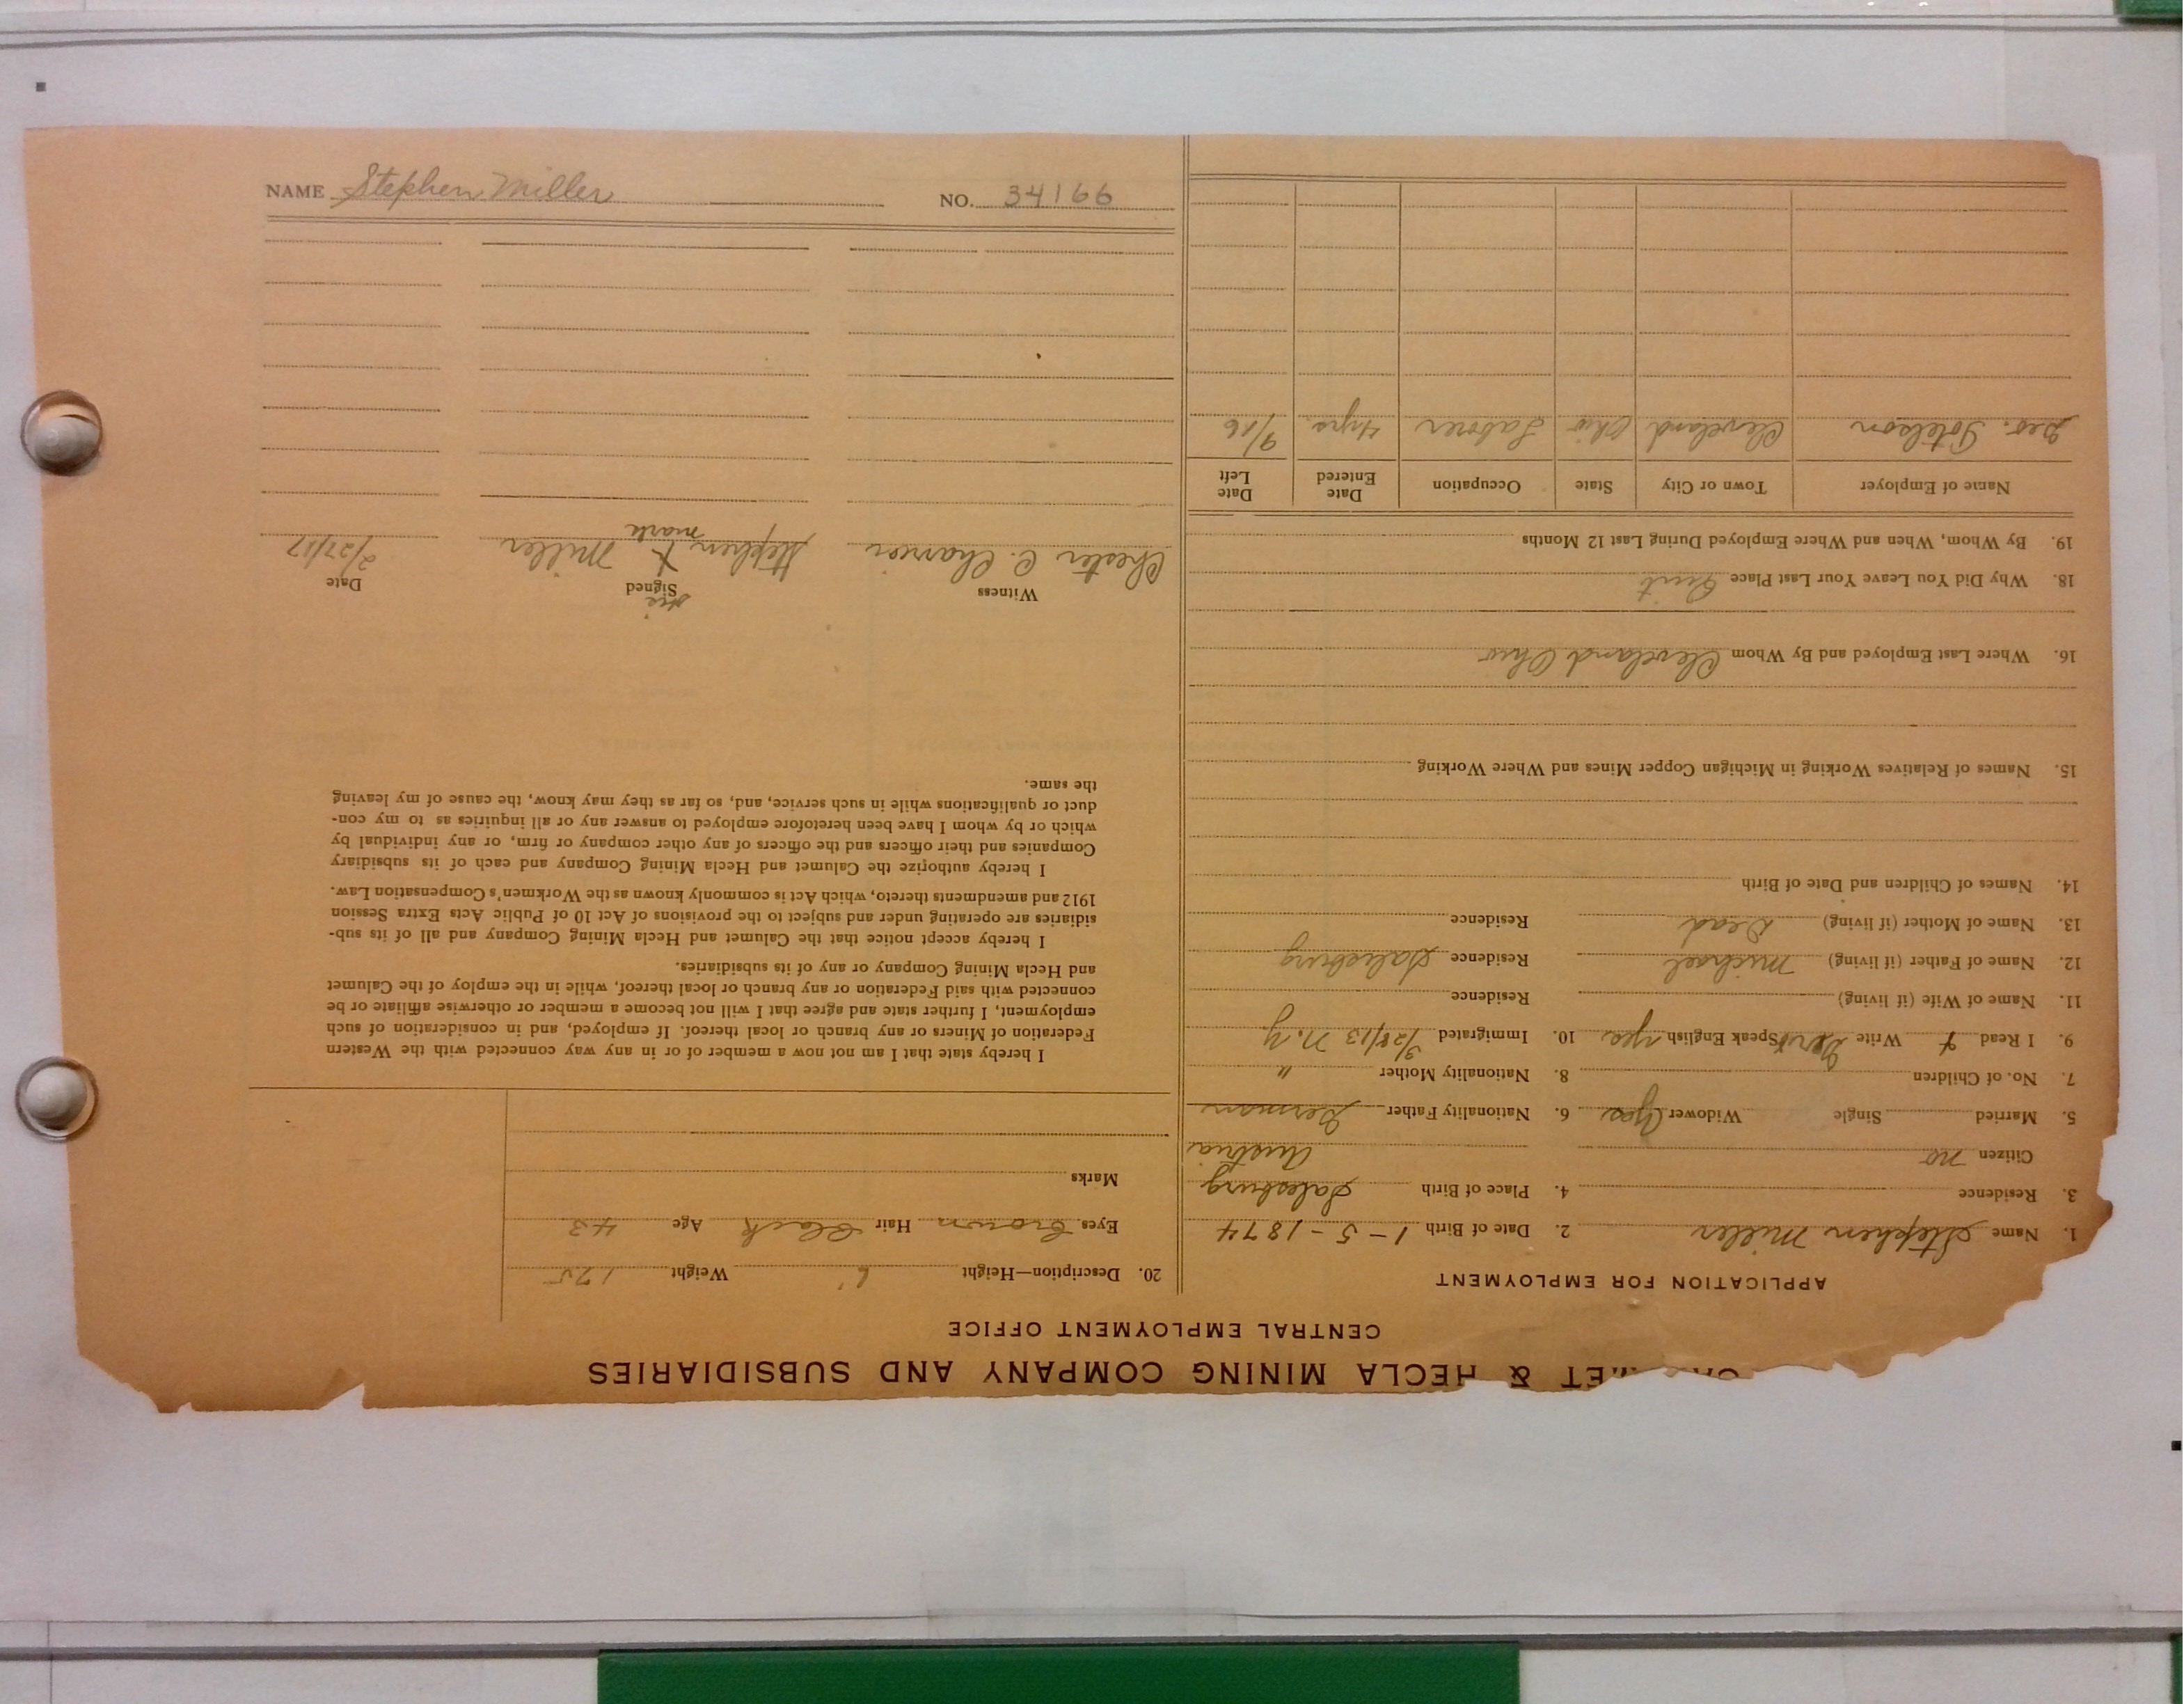 NAME Stephen Miller NO. 34166
MET & HECLA MINING COMPANY AND SUBSIDIARIES
CENTRAL EMPLOYMENT OFFICE
APPLICATION FOR EMPLOYMENT
1. Name Stephen Miller 2. Date of Birth 1-5-1874
3. Residence 4. Place of Birth Salesburg
Citizen no Austria
5. Married Single Widower Yes 6. Nationality Father German
7. No. of Children 8. Nationality Mother "
9. I Read Write Speak English yes 10. Immigrated 3/28/13 N.Y
11. Name of Wife (if living) Residence
12. Name of Father (if living) Michael Residence Salesburg
13. Name of Mother (if living) Dead Residence
14. Names of Children and Date of Birth
15. Names of Relatives Working in Michigan Copper Mines and Where Working
16. Where Last Employed and By Whom Cleveland Ohio
18. Why Did You Leave Your Last Place Quit
19. By Whom, When and Where Employed During Last 12 Months
Name of Employer Town or City State Occupation Date Entered Date Left
Geo. Cleveland Ohio Laborer 4yrs. 9/16
20. Description—Height 6' Weight 175
Eyes Brown Hair Black Age 43
Marks
I hereby state that I am not now a member of or in any way connected with the Western
Federation of Miners or any branch or local thereof. If employed, and in consideration of such
employment, I further state and agree that I will not become a member or otherwise affiliate or be
connected with said Federation or any branch or local thereof, while in the employ of the Calumet
and Hecla Mining Company or any of its subsidiaries.
I hereby accept notice that the Calumet and Hecla Mining Company and all of its sub-
sidiaries are operating under and subject to the provisions of Act 10 of Public Acts Extra Session
1912 and amendments thereto, which Act is commonly known as the Workmen's Compensation Law.
I hereby authorize the Calumet and Hecla Mining Company and each of its subsidiary
Companies and their officers and the officers of any other company or firm, or any individual by
which or by whom I have been heretofore employed to answer any or all inquiries as to my con-
duct or qualifications while in such service, and, so far as they may know, the cause of my leaving
the same.
his
Witness Signed Date
Chester C. Stephen X Miller 2/27/17
mark